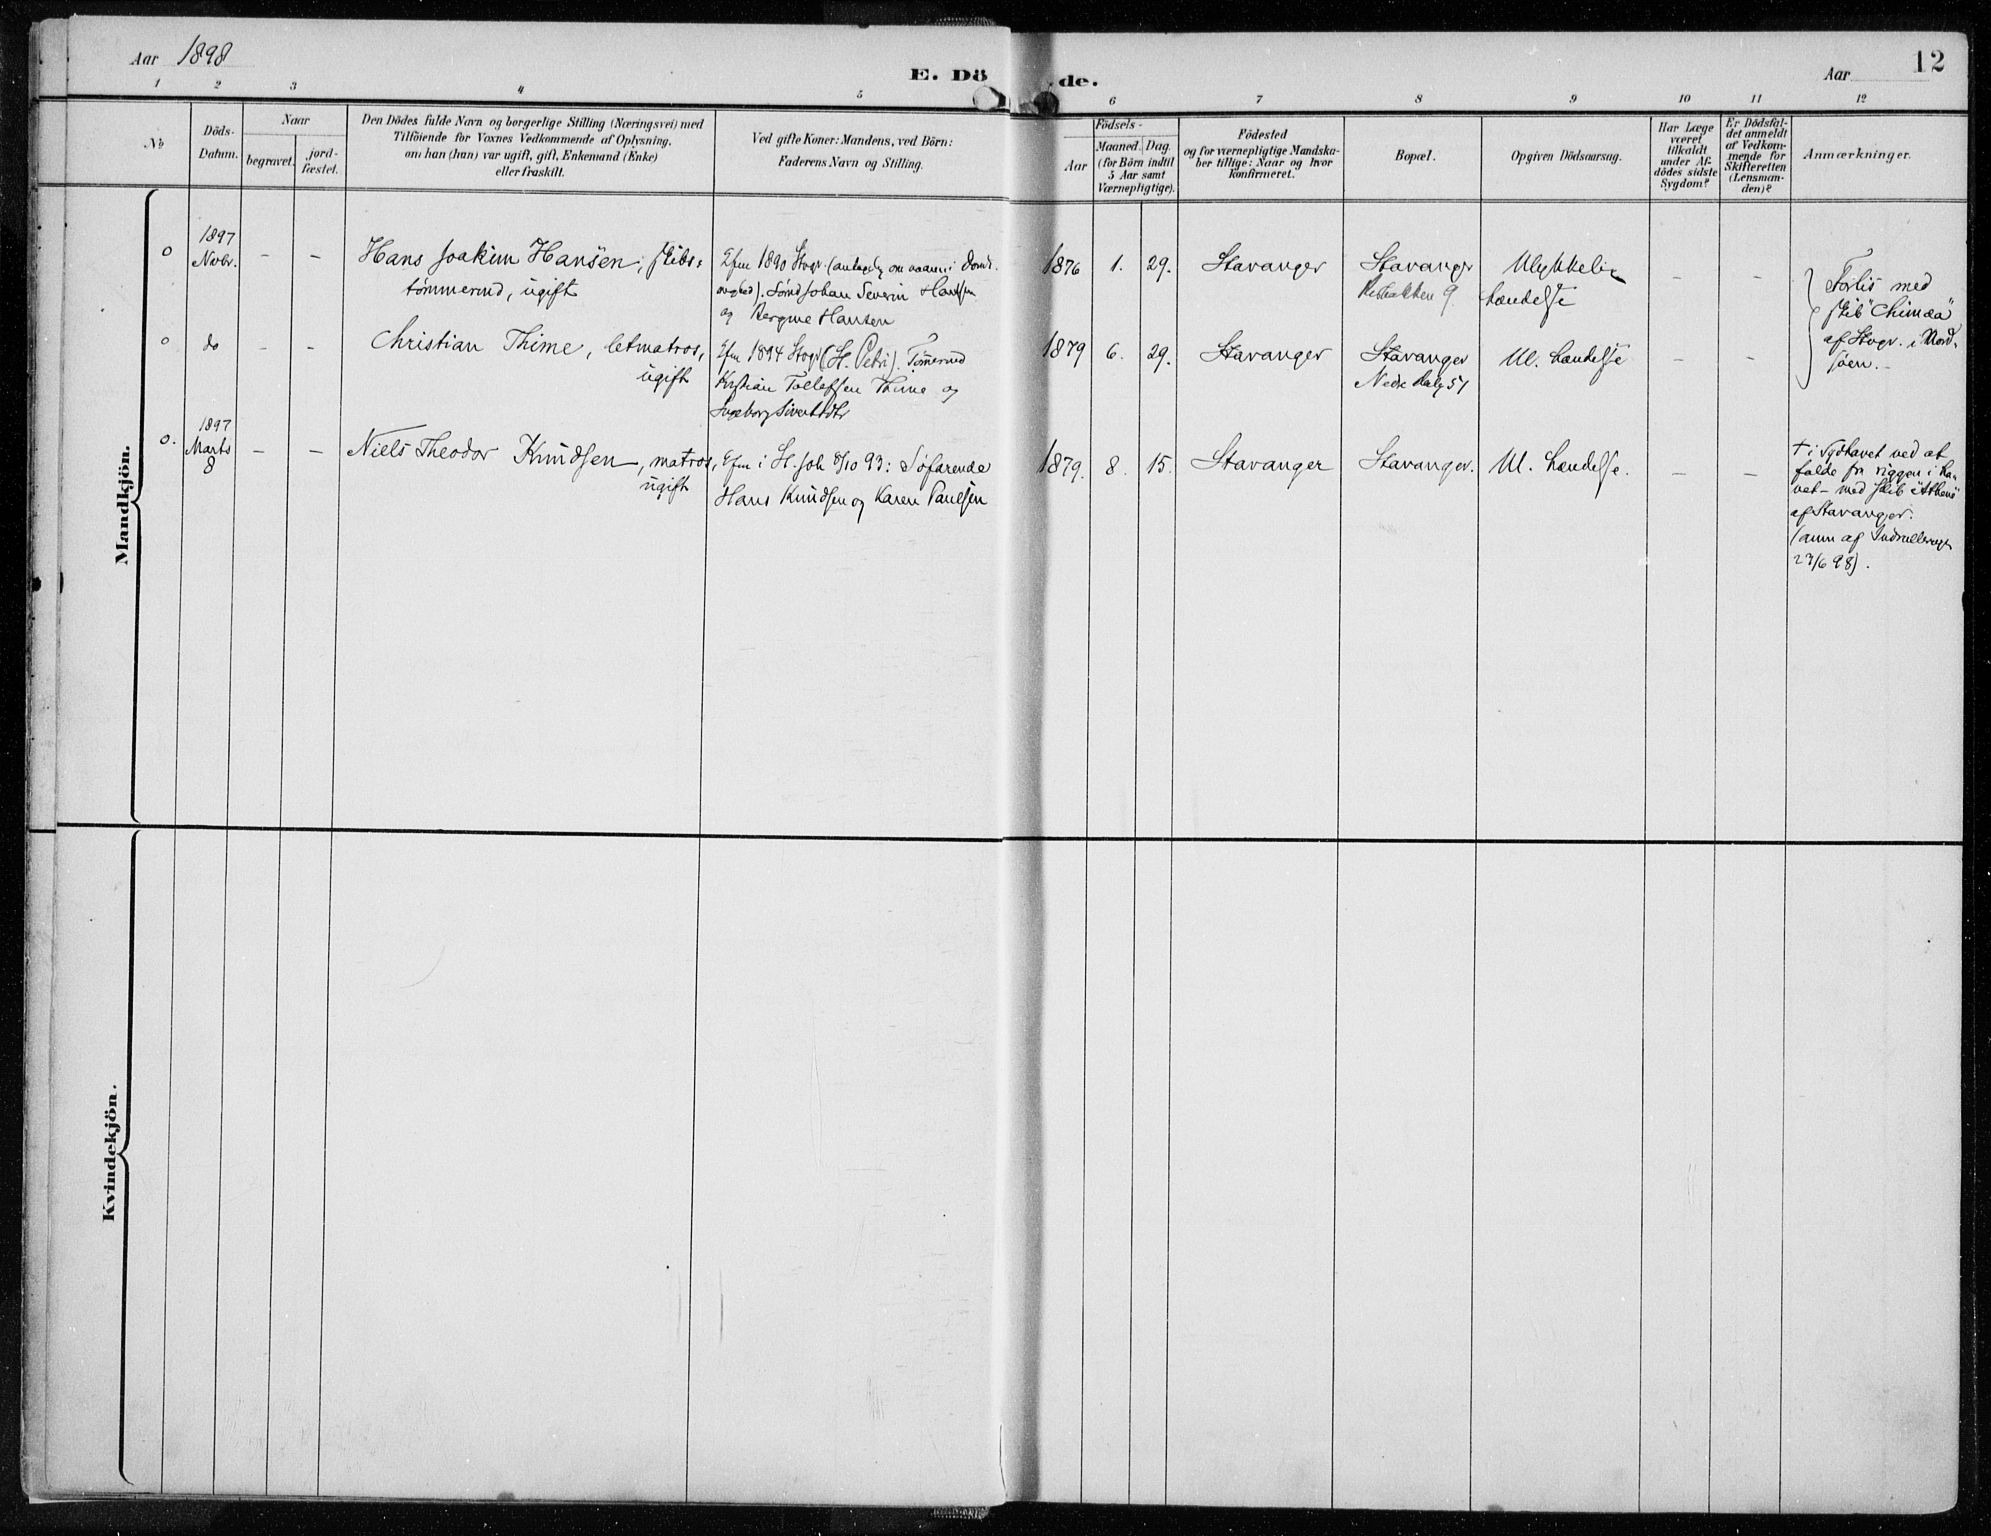 Aar 1898
E. Dö de.
Aar
12
1 2 3 4 5 6 7 8 9 10 11 12
No
Döds-
Datum.
Naar
begravet.
jord-
fæstet.
Den Dödes fulde Navn og borgerlige Stilling (Næringsvei) med
Tilföiende for Voxnes Vedkommende af Oplysning.
om han (hun) var ugift, gift, Enkemand (Enke)
eller fraskilt.
Ved gifte Koner: Mandens, ved Börn:
Faderens Navn og Stilling.
Födsels-
Aar
Maaned.
Dag.
(for Börn indtil
5 Aar samt
Værnepligtige).
Födested
og for værnepligtige Mandska-
ber tillige: Naar og hvor
konfirmeret.
Bopæl.
Opgiven Dödsaarsag.
Har Læge
været
tilkaldt
under Af-
dödes sidste
Sygdom?
Er Dödsfal-
det anmeldt
af Vedkom-
mende for
Skifteretten
(Lensman-
den)?
Anmærkninger.
Mandkjön.
0
1897
Novbr.
– –
Hans Joakim Hansen, skibs-
tömmermd, ugift
Efm 1890 Stvgr. (antagelig om vaaren i Domk.
). Sømd Johan Severin Hansen
og Hansen
1876 1. 29.
Stavanger
Stavanger
9.
Ulykkelig
hændelse
– –
Forlis med
skib "Chimæa"
af Stvgr. i Nord-
sjøen.
0
do
– –
Christian Thime, letmatros,
ugift
Efm 1894 Stvgr (St. Petri). Tømmermd
Kristian Tollefsen Thime og
Ingeborg Sivertsdtr
1879 6. 29.
Stavanger
Stavanger
Nedre 57
Ul. hændelse
– –
0.
1897
Marts
8
– –
Niels Theodor Knudsen, matros,
ugift
Efm i St. Joh 8/10 93: Søfarende
Hans Knudsen og Karen Paulsen
1879. 8. 15.
Stavanger
Stavanger.
Ul. hændelse.
– –
† i Sydhavet ved at
falde fra riggen i ha-
vet – med skib "Athene"
af Stavanger.
(anm af Indrullereragt
23/6 98).
Kvindekjön.